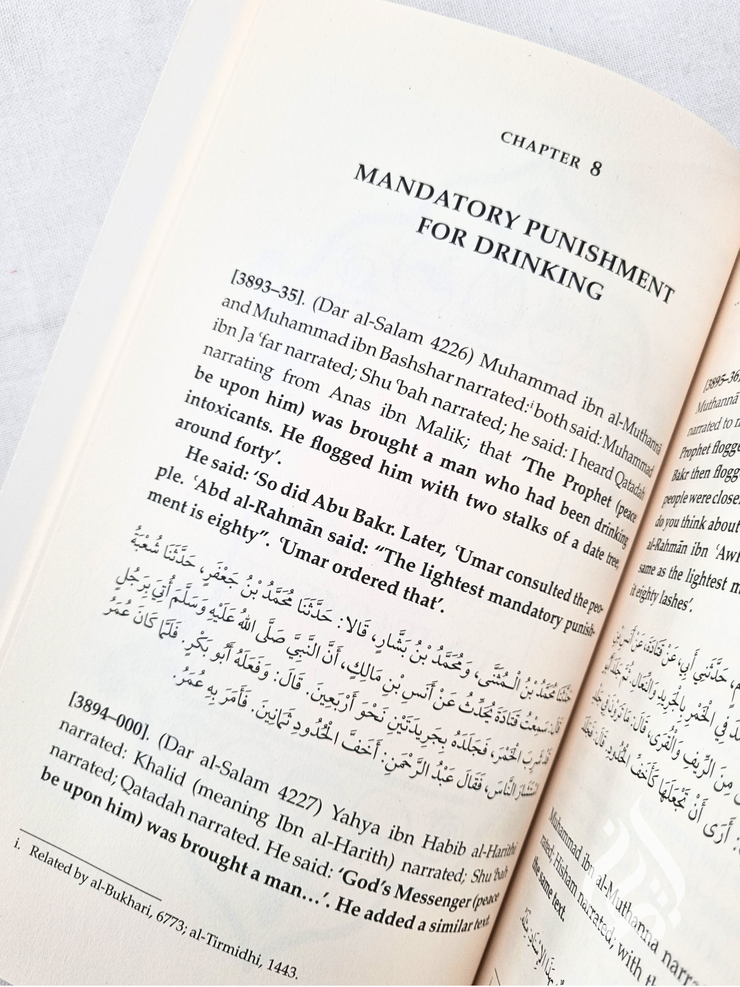 CHAPTER 8
MANDATORY PUNISHMENT
FOR DRINKING
[3893–35]. (Dar al-Salam 4226) Muhammad ibn al-Muthannā
and Muhammad ibn Bashshar narrated:ⁱ both said: Muhammad
ibn Ja ʿfar narrated; Shu ʿbah narrated; he said: I heard Qatadah
narrating from Anas ibn Malik; that ‘The Prophet (peace
be upon him) was brought a man who had been drinking
intoxicants. He flogged him with two stalks of a date tree,
around forty’.
He said: ‘So did Abu Bakr. Later, ʿUmar consulted the peo-
ple. ʿAbd al-Rahmān said: “The lightest mandatory punish-
ment is eighty”. ʿUmar ordered that’.
حَدَّثَنَا مُحَمَّدُ بْنُ الْمُثَنَّى، وَمُحَمَّدُ بْنُ بَشَّارٍ، قَالَا: حَدَّثَنَا مُحَمَّدُ بْنُ جَعْفَرٍ، حَدَّثَنَا شُعْبَةُ
قَالَ: سَمِعْتُ قَتَادَةَ يُحَدِّثُ عَنْ أَنَسِ بْنِ مَالِكٍ، أَنَّ النَّبِيَّ صَلَّى اللهُ عَلَيْهِ وَسَلَّمَ أُتِيَ بِرَجُلٍ
قَدْ شَرِبَ الْخَمْرَ، فَجَلَدَهُ بِجَرِيدَتَيْنِ نَحْوَ أَرْبَعِينَ. قَالَ: وَفَعَلَهُ أَبُو بَكْرٍ. فَلَمَّا كَانَ عُمَرُ
اسْتَشَارَ النَّاسَ، فَقَالَ عَبْدُ الرَّحْمَنِ: أَخَفَّ الْحُدُودِ ثَمَانِينَ. فَأَمَرَ بِهِ عُمَرُ.
[3894–000]. (Dar al-Salam 4227) Yahya ibn Habib al-Harithi
narrated: Khalid (meaning Ibn al-Harith) narrated; Shu ʿbah
narrated; Qatadah narrated. He said: ‘God’s Messenger (peace
be upon him) was brought a man…’. He added a similar text.
i. Related by al-Bukhari, 6773; al-Tirmidhi, 1443.
[3895–36
Muthannā
narrated to
Prophet flogge
Bakr then flogg
people were close
do you think about
al-Rahmān ibn ʿAwf
same as the lightest m
it eighty lashes’.
حَدَّثَنِي أَبِي، عَنْ قَتَادَةَ، عَنْ أَنَسِ
فِي الْخَمْرِ بِالْجَرِيدِ وَالنِّعَالِ، ثُمَّ جَلَدَ
مِنَ الرِّيفِ وَالْقُرَى، قَالَ: مَا تَرَوْنَ فِي
أَرَى أَنْ تَجْعَلَهَا كَأَخَفِّ الْحُدُودِ. قَالَ: فَجَلَدَ
Muhammad ibn al-Muthanna narra
rated; Hisham narrated; with th
the same text.